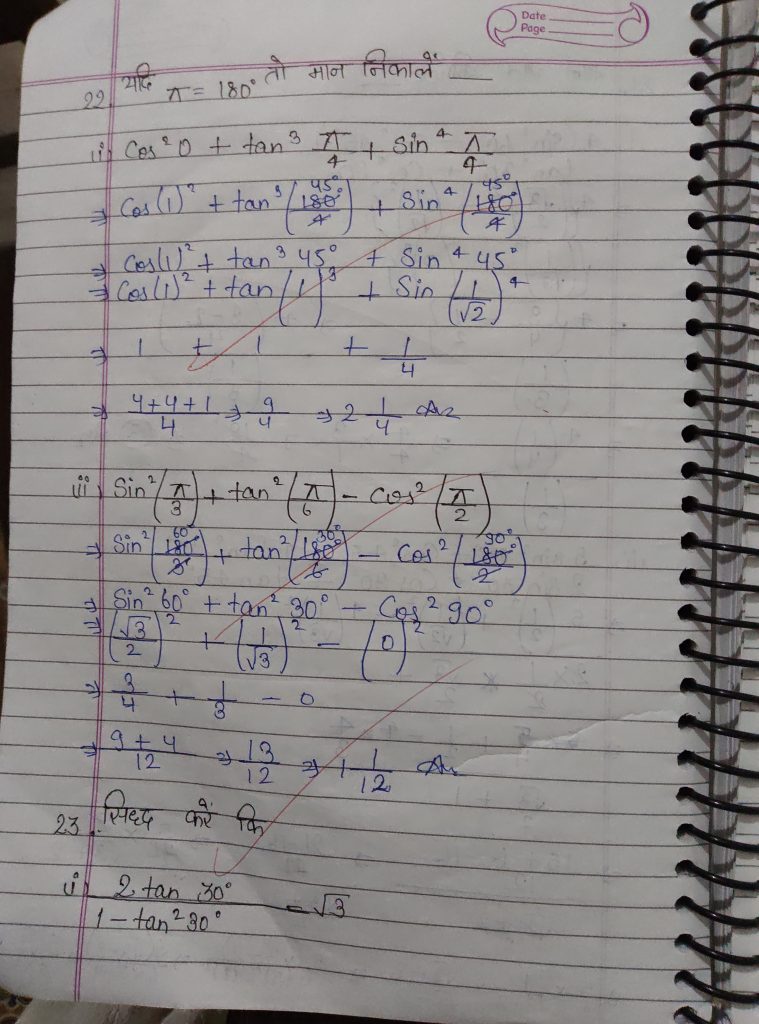 Date
Page
22. यदि π = 180° तो मान निकालें —
i) Cos²0 + tan³ π/4 + Sin⁴ π/4
⇒ Cos(1)² + tan³(180°/4) 45° + Sin⁴(180°/4) 45°
⇒ Cos(1)² + tan³ 45° + Sin⁴ 45°
⇒ Cos(1)² + tan(1)³ + Sin(1/√2)⁴
⇒ 1 + 1 + 1/4
⇒ 4+4+1/4 ⇒ 9/4 ⇒ 2 1/4
ii) Sin²(π/3) + tan²(π/6) - Cos²(π/2)
⇒ Sin²(180°/3) 60 + tan²(180°/6) 30° - Cos²(180°/2) 90°
⇒ Sin² 60° + tan² 30° - Cos² 90°
⇒ (√3/2)² + (1/√3)² - (0)²
⇒ 3/4 + 1/3 - 0
⇒ 9+4/12 ⇒ 13/12 ⇒ 1 1/12
23. सिध्द करें कि
i) 2 tan 30°/1 - tan² 30° = √3